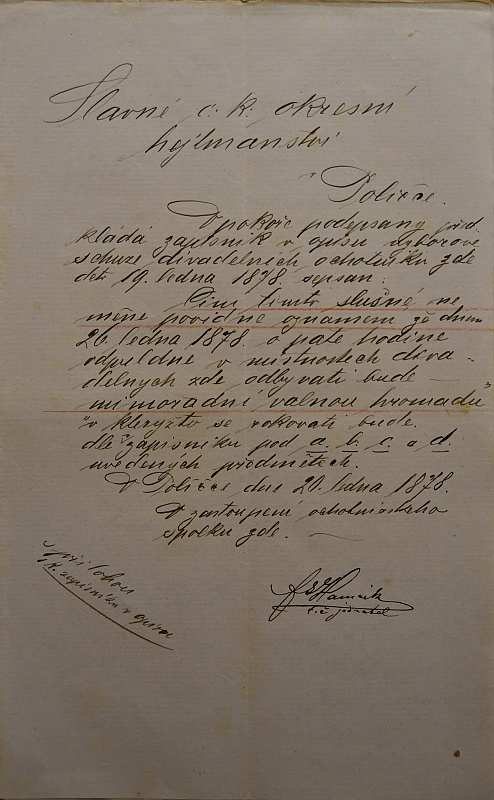 Slavné c. k. okresní
hejtmanství
v Poličce.
V pokoře podepsaný před
kládá zápisník v opisu výborové
schůze divadelních ochotníků zde
dto 19. ledna 1878. sepsan.
Činí tímto slušné ne
méně povinné oznámení že dnem
26. ledna 1878. o páté hodině
odpoledne v místnostech diva-
delnych zde odbyvati bude
mimořadní valnou hromadu"
"v kteryžto se rokovati bude
dle zápisníku pod a. b. c. a d.
uvedených předmětech.
V Poličce dne 20. ledna 1878.
V zastoupení ochotnického
spolku zde.
s přílohou
zápisníku v opisu
t. č. jednatel